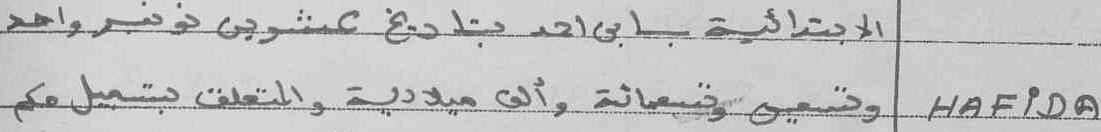 الابتدائية بابي احد بتاريخ عشرين نونبر واحد
وتسعين وتسعمائة وألف ميلادية والمتعلق بتسجيل حكم
HAFIDA